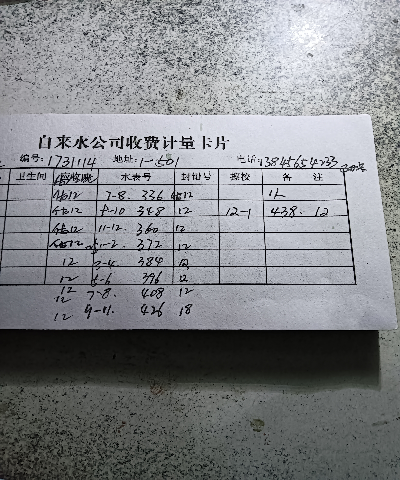 自来水公司收费计量卡片
编号:1731114 地址:1-501 电话:13845654233
卫生间 应收费 水表号 封钳号 报校 备注
估12 7-8. 336 12 1人
估12 9-10 348 12 12-1 438. 12
估12 11-12. 360 12
估12 1-2. 372 12
12 3-4 384 12
12 5-6 396 12
12 7-8. 408 12
12 9-11. 426 18